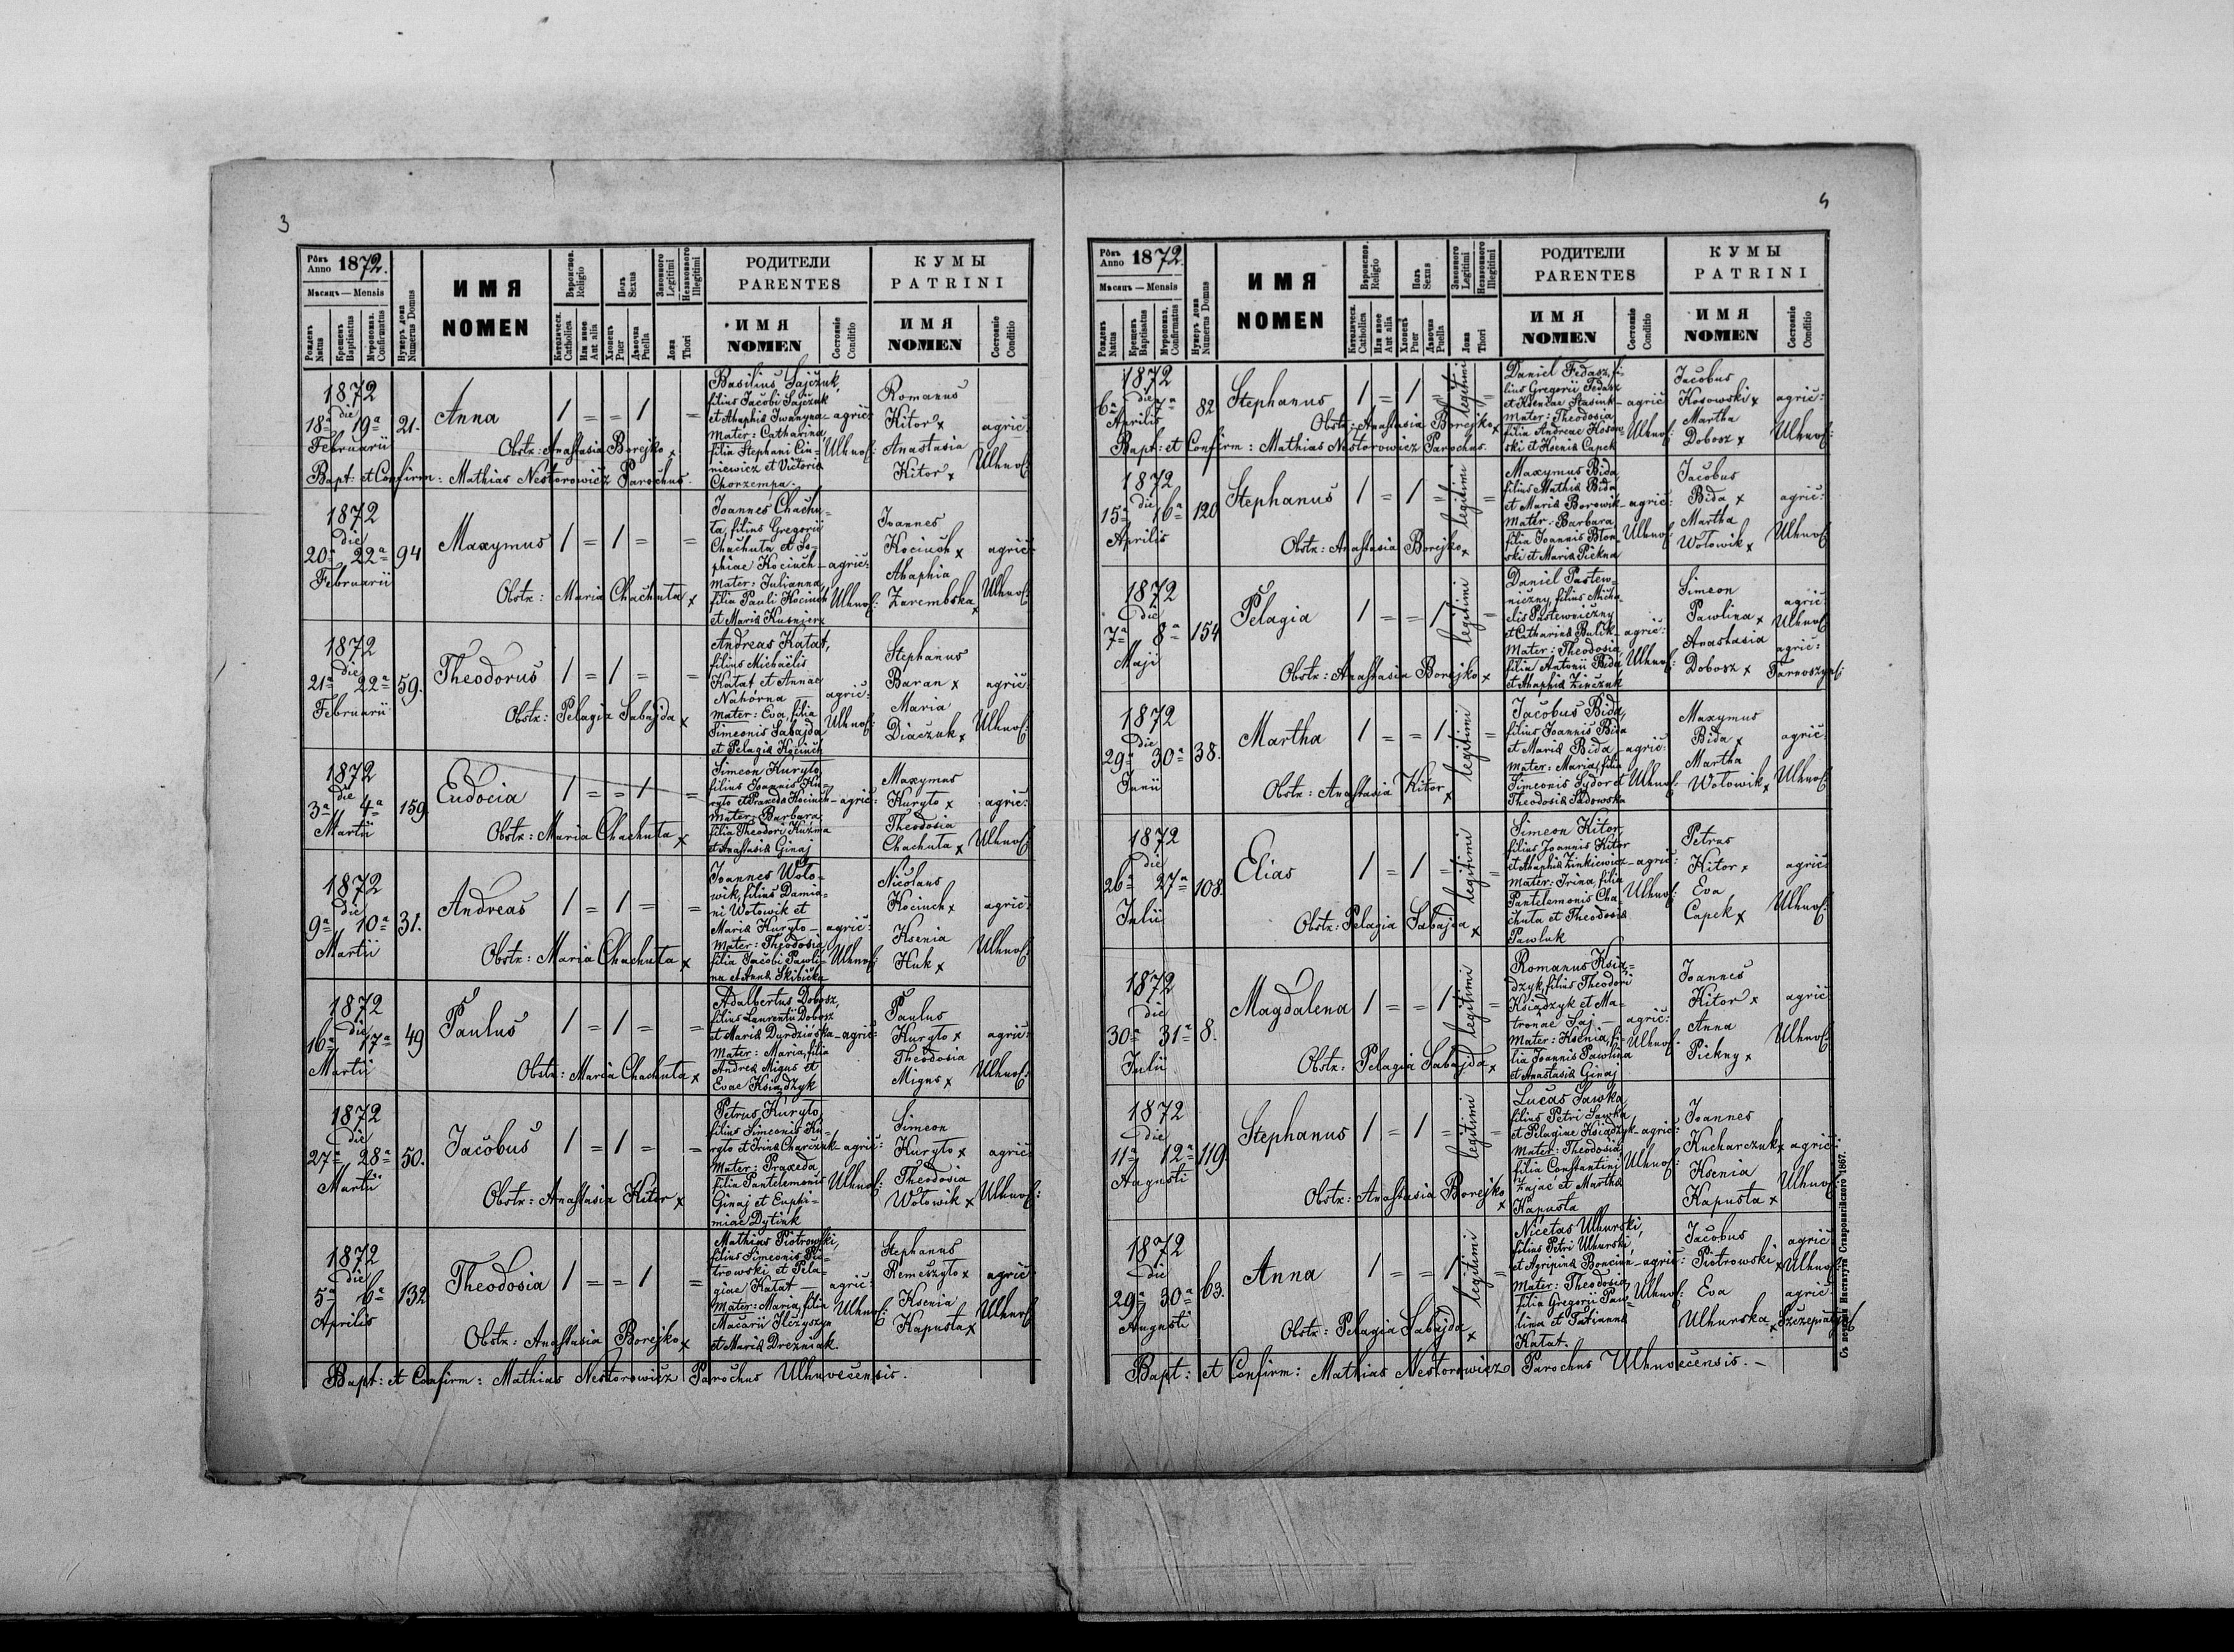 3
Рôкъ
Anno 1872.
Мѣсяцъ — Mensis
Рожденъ
Natus
Крещенъ
Baptisatus
Мѵропомаз.
Confirmatus
Нумеръ дома
Numerus Domus
ИМЯ
NOMEN
Вѣроиспов.
Religio
Католическ.
Catholica
Или иное
Aut alia
Полъ
Sexus
Хлопецъ
Puer
Дѣвочка
Puella
Законного
Legitimi
Незаконного
Illegitimi
Ложа
Thori
РОДИТЕЛИ
PARENTES
ИМЯ
NOMEN
Состояніе
Conditio
КУМЫ
PATRINI
ИМЯ
NOMEN
Состояніе
Conditio
1872
die
18a 19a
Februarii
21.
Anna
1 = = 1 =
Basilius Sajczuk,
filius Jacobi Sajczuk
et Ahaphia Iwanyna - agric:
Mater: Catharina
filia Stephani Ciu-
niewicz et Victoria
Chorzempa.
Uhnov:
Romanus
Kitor x
Anastasia
Kitor x
agric:
Uhnov:
Obstx: Anastasia Borejko x
Bapt: et Confirm: Mathias Nestorowicz Parochus.
1872
die
20a 22a
Februarii
94
Maxymus
1 = 1 = =
Joannes Chachu-
ta, filius Gregorii
Chachuta et So-
phiae Kociuch - agric:
Mater: Julianna
filia Pauli Kociuch
et Maria Kusnierz
Joannes
Kociuch x
Ahaphia
Zarembska x
agric:
Obstx: Maria Chachuta x
1872
die
21a 22a
Februarii
59.
Theodorus
1 = 1 = =
Andreas Katat,
filius Michaelis
Katat et Annae
Nahorna - agric:
Mater: Eva, filia
Simeonis Sabajda
et Pelagia Kociuch
Stephanus
Baran x
Maria
Diaczuk x
agric:
Obstx: Pelagia Sabajda x
1872
die
3a 4a
Martii
159
Eudocia
1 = = 1 =
Simeon Kuryto,
filius Joannis Ku-
ryto et Praxeda Kociuch - agric:
Mater: Barbara,
filia Theodori Kuzma
et Anastasia Ginaj
Maxymus
Kuryto x
Theodosia
Chachuta x
agric:
Obstx: Maria Chachuta x
1872
die
9a 10a
Martii
31.
Andreas
1 = 1 = =
Joannes Woto-
wik, filius Damia-
ni Wotowik et
Maria Kuryto - agric:
Mater: Theodosia
filia Jacobi Pawli-
na et Anna Skibicka
Nicolaus
Kociuch x
Ksenia
Huk x
agric:
Obstx: Maria Chachuta x
1872
die
16a 17a
Martii
49
Paulus
1 = 1 = =
Adalbertus Dobosz,
filius Laurentii Dobosz
et Maria Dyrdzińska - agric:
Mater: Maria, filia
Andrea Migus et
Evae Książdzyk
Paulus
Kuryto x
Theodosia
Migus x
agric:
Obstx: Maria Chachuta x
1872
die
27a 28a
Martii
50.
Jacobus
1 = 1 = =
Petrus Kuryto
filius Simeonis Ku-
ryto et Irina Charczuk - agric:
Mater: Praxeda
filia Pantelemonis
Ginaj et Euphi-
miae Dytiuk
Simeon
Kuryto x
Theodosia
Wotowik x
agric:
Obstx: Anastasia Kitor x
1872
die
5a 6a
Aprilis
132
Theodosia
1 = = 1 =
Mathias Piotrowski,
filius Simeonis Pio-
trowski et Pela-
giae Katat agric:
Mater: Maria, filia
Macarii Ilczyszyn
et Maria Drezniak.
Stephanus
Remeszyto x
Ksenia
Kapusta x
agric:
Obstx: Anastasia Borejko x
Bapt: et Confirm: Mathias Nestorowicz Parochus Uhnvecensis.
Рôкъ
Anno 1872.
Мѣсяцъ — Mensis
Рожденъ
Natus
Крещенъ
Baptisatus
Мѵропомаз.
Confirmatus
Нумеръ дома
Numerus Domus
ИМЯ
NOMEN
Вѣроиспов.
Religio
Католическ.
Catholica
Или иное
Aut alia
Полъ
Sexus
Хлопецъ
Puer
Дѣвочка
Puella
Законного
Legitimi
Незаконного
Illegitimi
Ложа
Thori
РОДИТЕЛИ
PARENTES
ИМЯ
NOMEN
Состояніе
Conditio
КУМЫ
PATRINI
ИМЯ
NOMEN
Состояніе
Conditio
1872
die
6a 7a
Aprilis
82
Stephanus
1 = 1 = legitimi =
Daniel Fedasz, fi-
lius Gregorii Fedasz
et Kseniae Stasiuk - agric:
Mater: Theodosia
filia Andreae Kosow-
ski et Ksenia Capek
Jacobus
Kosowski x
Martha
Dobosz x
agric:
Obstx: Anastasia Borejko x
Bapt: et Confirm: Mathias Nestorowicz Parochus.
1872
die
15a 16a
Aprilis
120
Stephanus
1 = 1 = legitimi =
Maxymus Bida
filius Mathia Bida
et Maria Borowik - agric:
Mater: Barbara
filia Joannis Blon-
ski et Maria Piekna
Jacobus
Bida x
Martha
Wotowik x
agric:
Obstx: Anastasia Borejko x
1872
die
7a 8a
Maji
154
Pelagia
1 = = 1 legitimi =
Daniel Pastew-
niczny, filius Micha-
elis Pastewniczny
et Catharina Bulik - agric:
Mater: Theodosia,
filia Antonii Bida
et Ahaphia Zinczuk
Simeon
Pawlina x
Anastasia
Dobosz x
agric:
agric:
Obstx: Anastasia Borejko x
1872
die
29a 30a
Junii
38.
Martha
1 = = 1 legitimi =
Jacobus Bida,
filius Joannis Bida
et Maria Bida - agric:
Mater: Maria, filia
Simeonis Sydor et
Theodosia Sadowska
Maxymus
Bida x
Martha
Wotowik x
agric:
Obstx: Anastasia Kitor x
1872
die
26a 27a
Julii
108.
Elias
1 = 1 = legitimi =
Simeon Kitor,
filius Joannis Kitor
et Ahaphia Zinkiewicz - agric:
Mater: Irina, filia
Pantelemonis Cha-
chuta et Theodosia
Pawluk
Petrus
Kitor x
Eva
Capek x
agric:
Obstx: Pelagia Sabajda x
1872
die
30a 31a
Julii
8.
Magdalena
1 = = 1 legitimi =
Romanus Ksią-
dzyk, filius Theodori
Ksiądzyk et Ma-
tronae Saj - agric:
Mater: Ksenia, fi-
lia Joannis Pawlina
et Anastasia Ginaj
Joannes
Kitor x
Anna
Piekny x
agric
Obstx: Pelagia Sabajda x
1872
die
11a 12a
Augusti
119
Stephanus
1 = 1 = legitimi =
Lucas Sawka,
filius Petri Sawka
et Pelagiae Ksiądzyk - agric:
Mater: Theodosia,
filia Constantini
Zając et Martha
Kapusta
Joannes
Kucharczuk x
Ksenia
Kapusta x
agric:
Obstx: Anastasia Borejko x
1872
die
29a 30a
Augusti
63.
Anna
1 = = 1 legitimi =
Nicetas Uhurski,
filius Petri Uhurski,
et Agripina Boncinn - agric:
Mater: Theodosia
filia Gregorii Paw-
lina et Tatianna
Katat.
Jacobus
Piotrowski x
Eva
Uhurska x
agric:
agric:
Obstx: Pelagia Sabajda x
Bapt: et Confirm: Mathias Nestorowicz Parochus Uhnvecensis. -
Съ печатни Института Ставропигійского 1867.